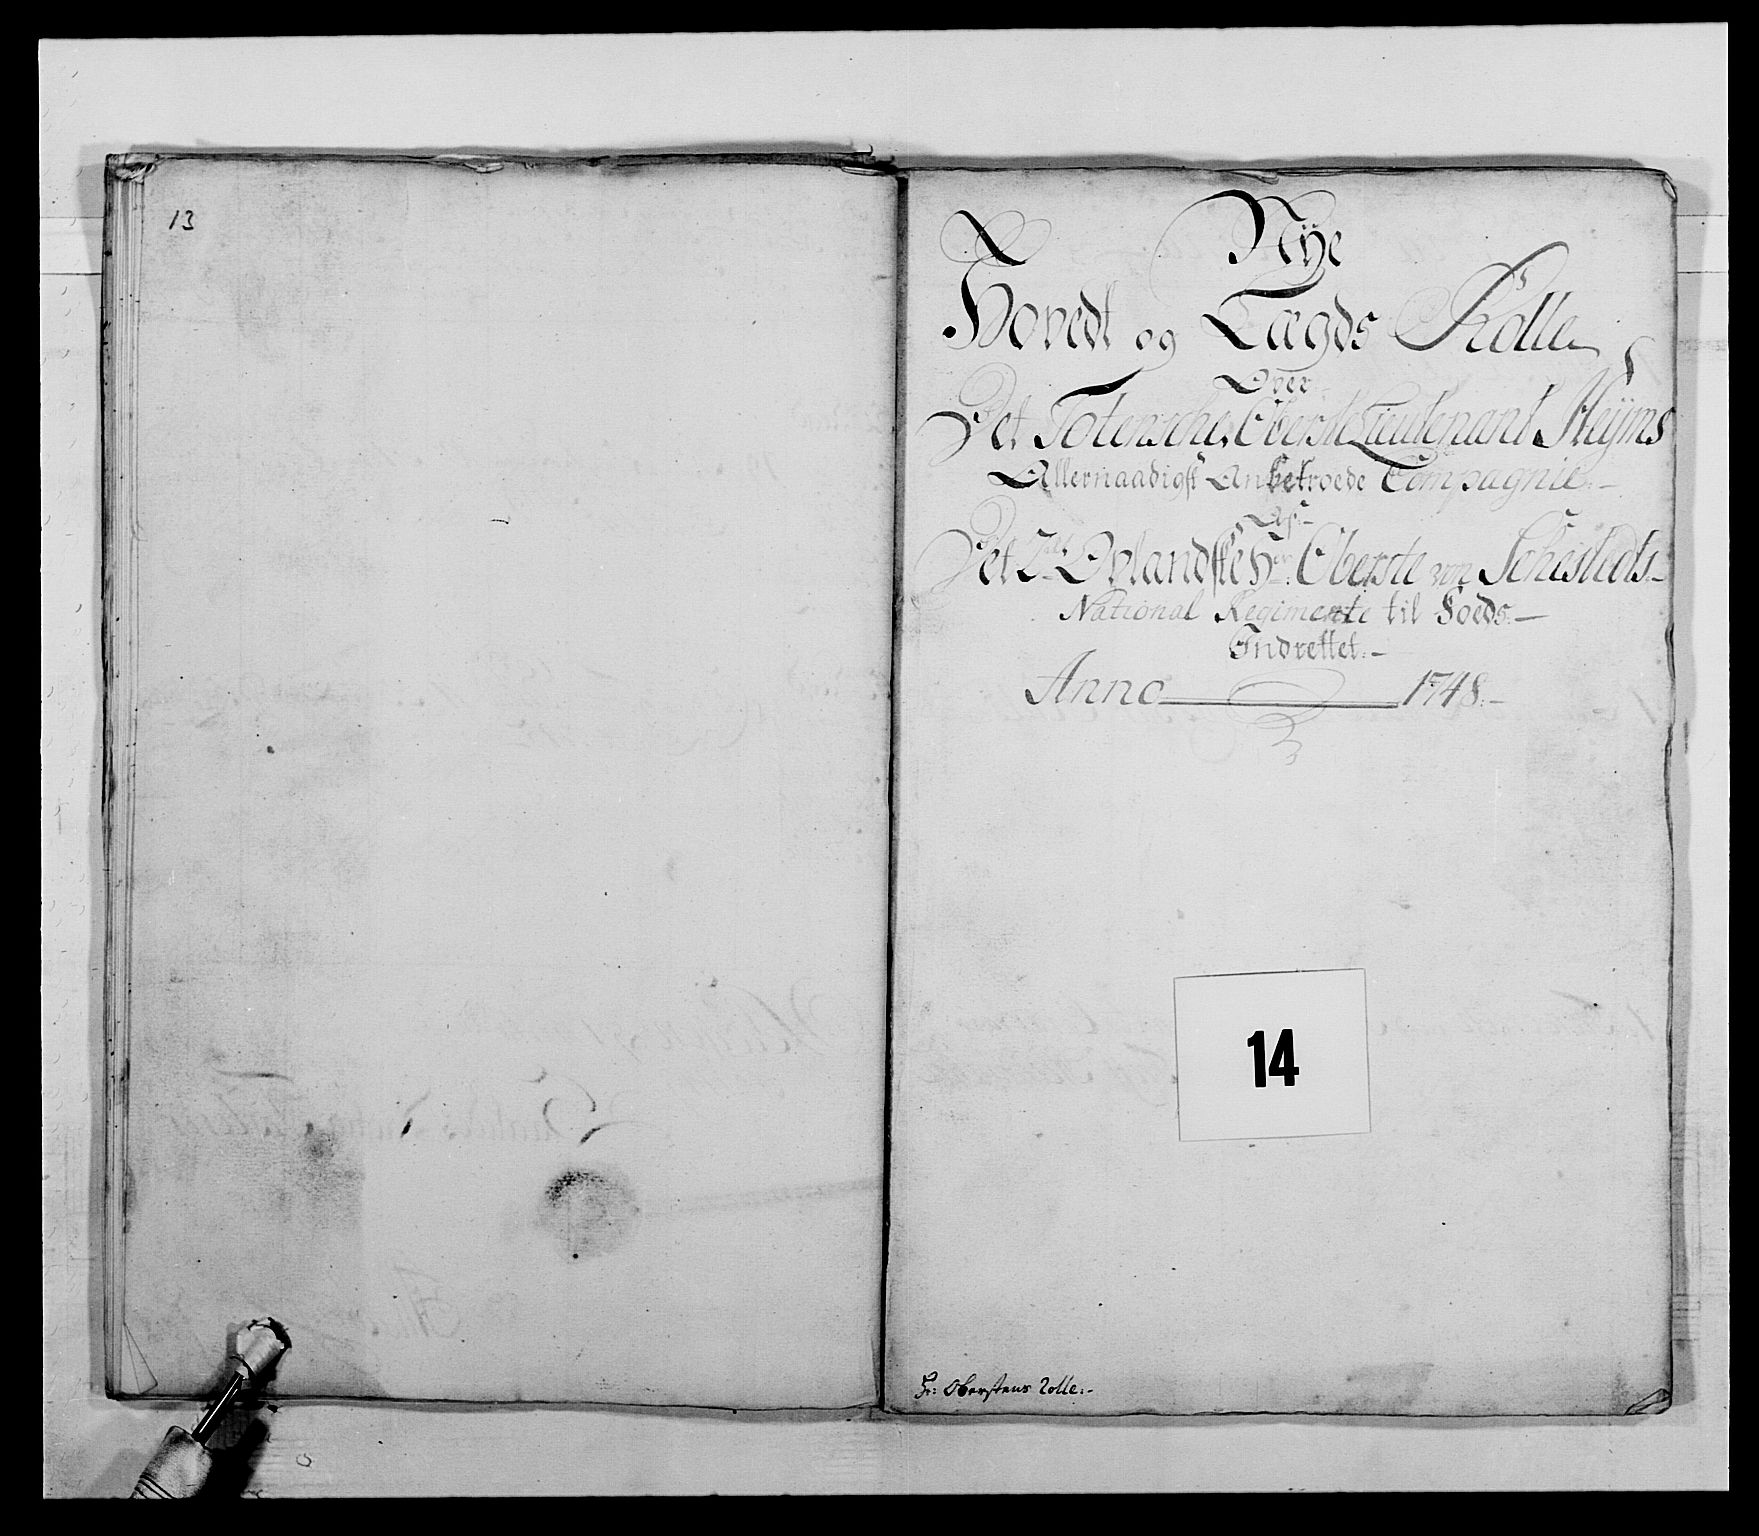 13
Nÿe
Hovedt og Lægds Rolle
Over
Det Totensche Oberste Lieutenant Heÿms
Allernaadigst Anbetroede Compagnie:-
Af:-
Det 2det Oplandske Hr: Oberste von Schesteds:-
National Regimente til Foeds:-
Indrettet:-
Anno 1748:-
14
Hr: Oberstens Rolle:-